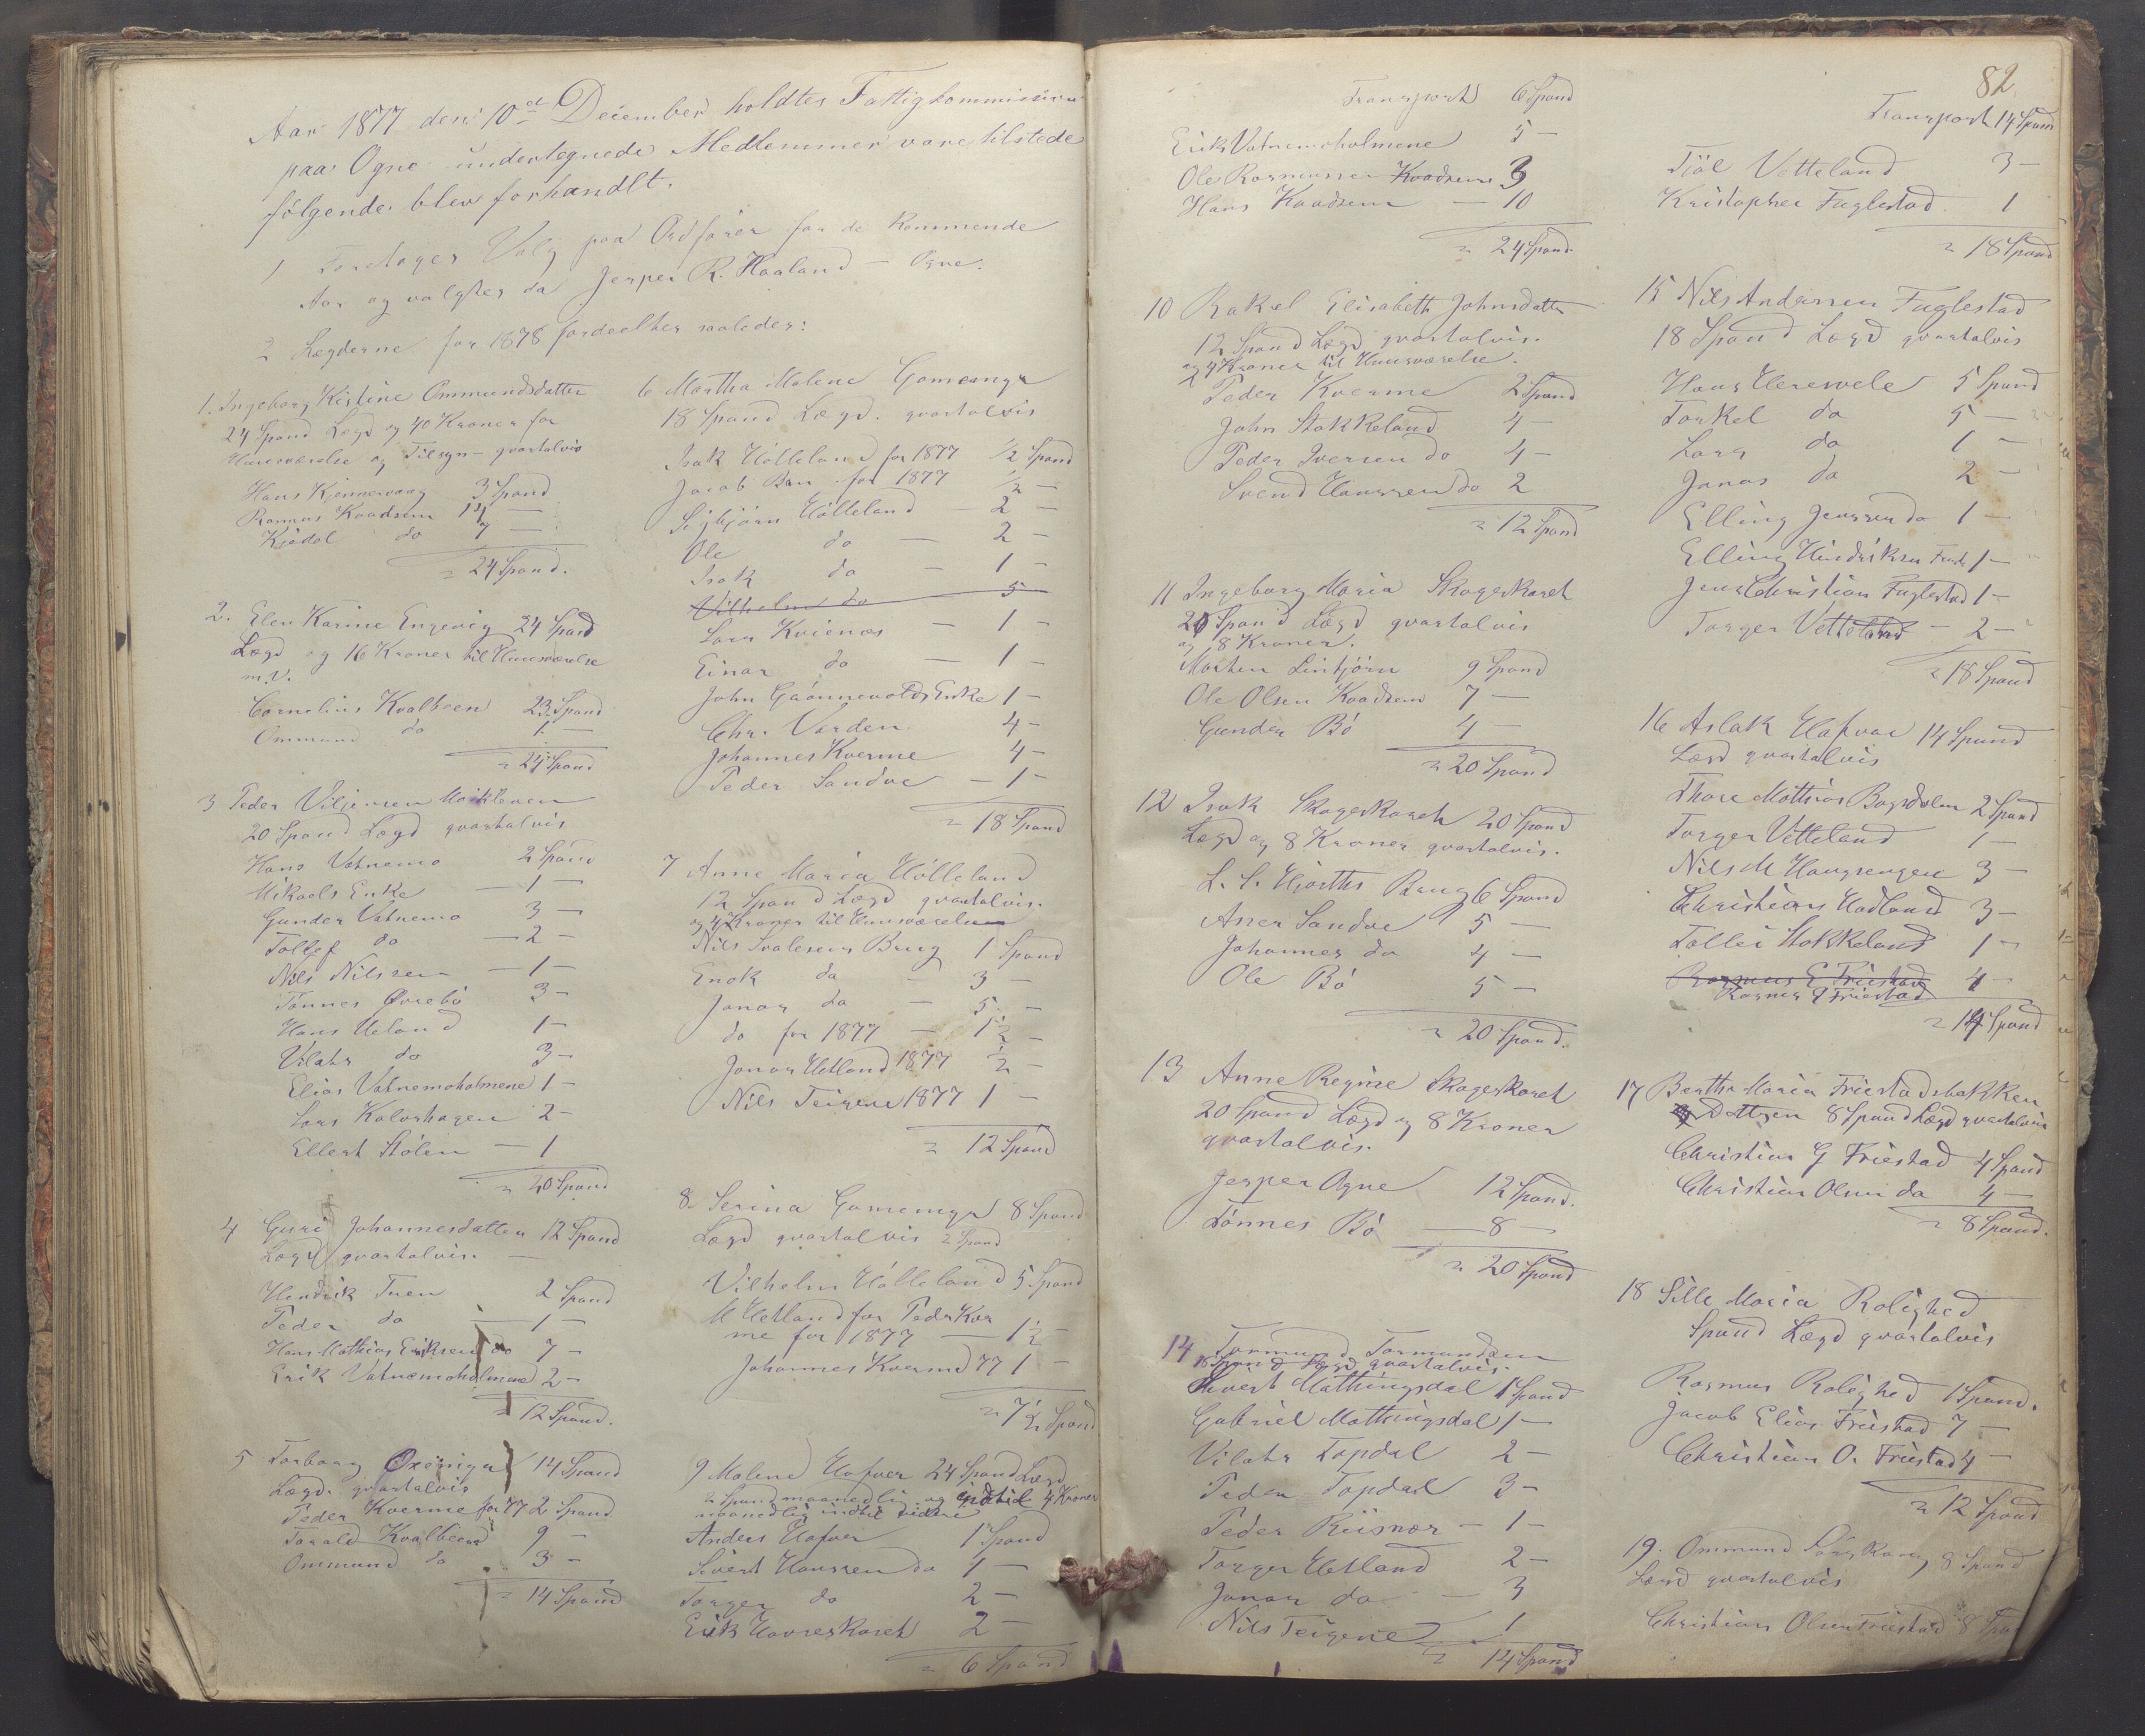 Aar 1877 den 10de December holdtes Fattigkommission
paa Ogne undertegnede Medlemmer vare tilstede
følgende blev forhandlt.
1 Foretages Valg paa Ordfører for de kommende
Aar og valgtes da Jesper R. Haaland - Ogne.
2 Lægderne for 1878 fordeeltes saaledes:
1. Ingeborg Kistine Ommundsdatter
24 Spand Lægd og 40 Kroner for
Huusværelse og Tilsyn - qvartalvis
Hans Kjennevaag 3 Spand
Rasmus Kvadsem 14 —
Kjedel do 7 —
= 24 Spand.
2. Elen Karine Engevig 24 Spand
Lægd og 16 Kroner til Huusværelse
m.v.
Cornelius Kvalbeen 23 Spand
Ommund do 1 —
= 24 Spand
3 Peder Viljemsen
20 Spand Lægd qvartalvis
Hans Vatnemo 2 Spand
Mikaels Enke — 1 —
Gunder Vatnemo 3 —
Tollef do — 2 —
Nils Nilssen — 1 —
Tønnes Ørebø 3 —
Hans Ueland 1 —
Vilats do 3 —
Elias Vatnemoholmene 1 —
Lars Kalvshagen 2 —
Ellert Stølen — 1
= 20 Spand
4 Guri Johannesdatter 12 Spand
Lægd qvartalvis. —
Hendrik Tuen 2 Spand
Peder do — 1 —
Hans Mathias Eriksen do 7 —
Erik Vatnemoholmene 2 —
= 12 Spand.
5 Torborg 14 Spand
Lægd. qvartalvis
Peder Kverme for 77 2 Spand
Torald Kvalbeen 9 —
Ommund do 3 —
= 14 Spand
6 Martha Malene Gamemyr
18 Spand Lægd. qvartalvis
Isak Hölleland for 1877 1/2 Spand
Jacob Bru for 1877 1/2 —
Sigbjörn Hölleland — 2 —
Ole do — 2 —
Isak do — 1 —
Vilhelm do — 5 —
Lars Kvienæs — 1 —
Einar do — 1 —
John Gaånnevolds Enke 1 —
Chr. Varden 4 —
Johannes Kverme 4 —
Peder Sandve — 1 —
= 18 Spand
7 Anne Maria Hölleland
12 Spand Lægd qvartalvis.
og 4 Kroner til Huusværelse
Nils Svalesens Brug 1 Spand
Enok do — 3 —
Jonas do — 5 —
do for 1877 — 1 1/2 —
Jonas Hetland 1877 1/2 —
Nils Teigene 1877 1 —
= 12 Spand
8. Serina Gamemyr 8 Spand
Lægd qvartalvis 2 Spand
Vilhelm Hölleland 5 Spand
M Hetland for Peder Kver
me for 1877 — 1 1/2 —
Johannes Kverme 77 1 —
= 7 1/2 Spand
9 Malene Hafver 24 Spand Lægd
2 Spand maanedlig og indtil 4 Kroner
maanedlig indtil videre
Anders Hafver 1 Spand
Sivert Hanssen do 1 —
Torger do 2 —
Erik Havreskaret 2 —
= 6 Spand
Transport 6 Spand
Erik Vatnemoholmene 5 —
Ole Rasmussen Kvadsem 3
Hans Kvadsem — 10
= 24 Spand.
10 Rakel Elisabeth Johnsdatter
12 Spand Lægd qvartalvis.
og 4 Kroner til Huusværelse.
Peder Kverme 2 Spand
John Stokkeland 4 —
Peder Iversen do 4 —
Svend Hanssen do 2
= 12 Spand
11 Ingeborg Maria Skageskaret
20 Spand Lægd qvartalvis
og 8 Kroner.
Morten Lintjörn 9 Spand
Ole Olsen Kvadsem 7 —
Gunder Bö 4 —
= 20 Spand
12 Isak Skageskaret 20 Spand
Lægd og 8 Kroner qvartalvis.
L. C. Hjorths Brug 6 Spand
Aner Sandve 5 —
Johannes do 4 —
Ole Bö 5 —
= 20 Spand.
13 Anne Regine Skageskaret
20 Spand Lægd og 8 Kroner
qvartalvis.
Jesper Ogne 12 Spand.
Tönnes Bö — 8 —
= 20 Spand
14 Tormund Tormundsen
18 Spand Lægd qvartalvis.
Sivert Mathingsdal 1 Spand
Gabriel Mathingsdal 1 —
Vilats Topdal 2 —
Peder Topdal 3 —
Peder Riisnæs — 1 —
Torger Hetland 2 —
Jonas do — 3
Nils Teigene 1
= 14 Spand
82
Transport 14 Spand
Tjöl Vetteland 3 —
Kristopher Fuglestad 1
= 18 Spand
15 Nils Anderssen Fuglestad
18 Spand Lægd qvartalvis
Hans Herevele 5 Spand
Torkel do 5 —
Lars do 1 —
Jonas do 2 —
Elling Jenssen do 1 —
Elling Hindriksen 1 —
Jens Christian Fuglestad 1 —
Torger Vetteland — 2 —
= 18 Spand
16 Aslak Hafver 14 Spand
Lægd qvartalvis
Thore Mathias 2 Spand
Torger Vetteland 1 —
Nils M Haugsengen 3 —
Christian Hadland 3 —
Tollei Stokkeland 1 —
Rasmus E Friestad 4 —
Rasmus G Friestad
= 14 Spand
17 Berthe Maria Friestadsbakken
Dattren 8 Spand Lægd qvartalvis
Christian G Friestad 4 Spand
Christian Olsen do 4 —
= 8 Spand.
18 Sille Maria Rolighed
Spand Lægd qvartalvis
Rasmus Rolighed 1 Spand.
Jacob Elias Friestad 7 —
Christian O. Friestad 4 —
= 12 Spand
19. Ommund 8 Spand
Lægd qvartalvis
Christian Olsen Friestad 8